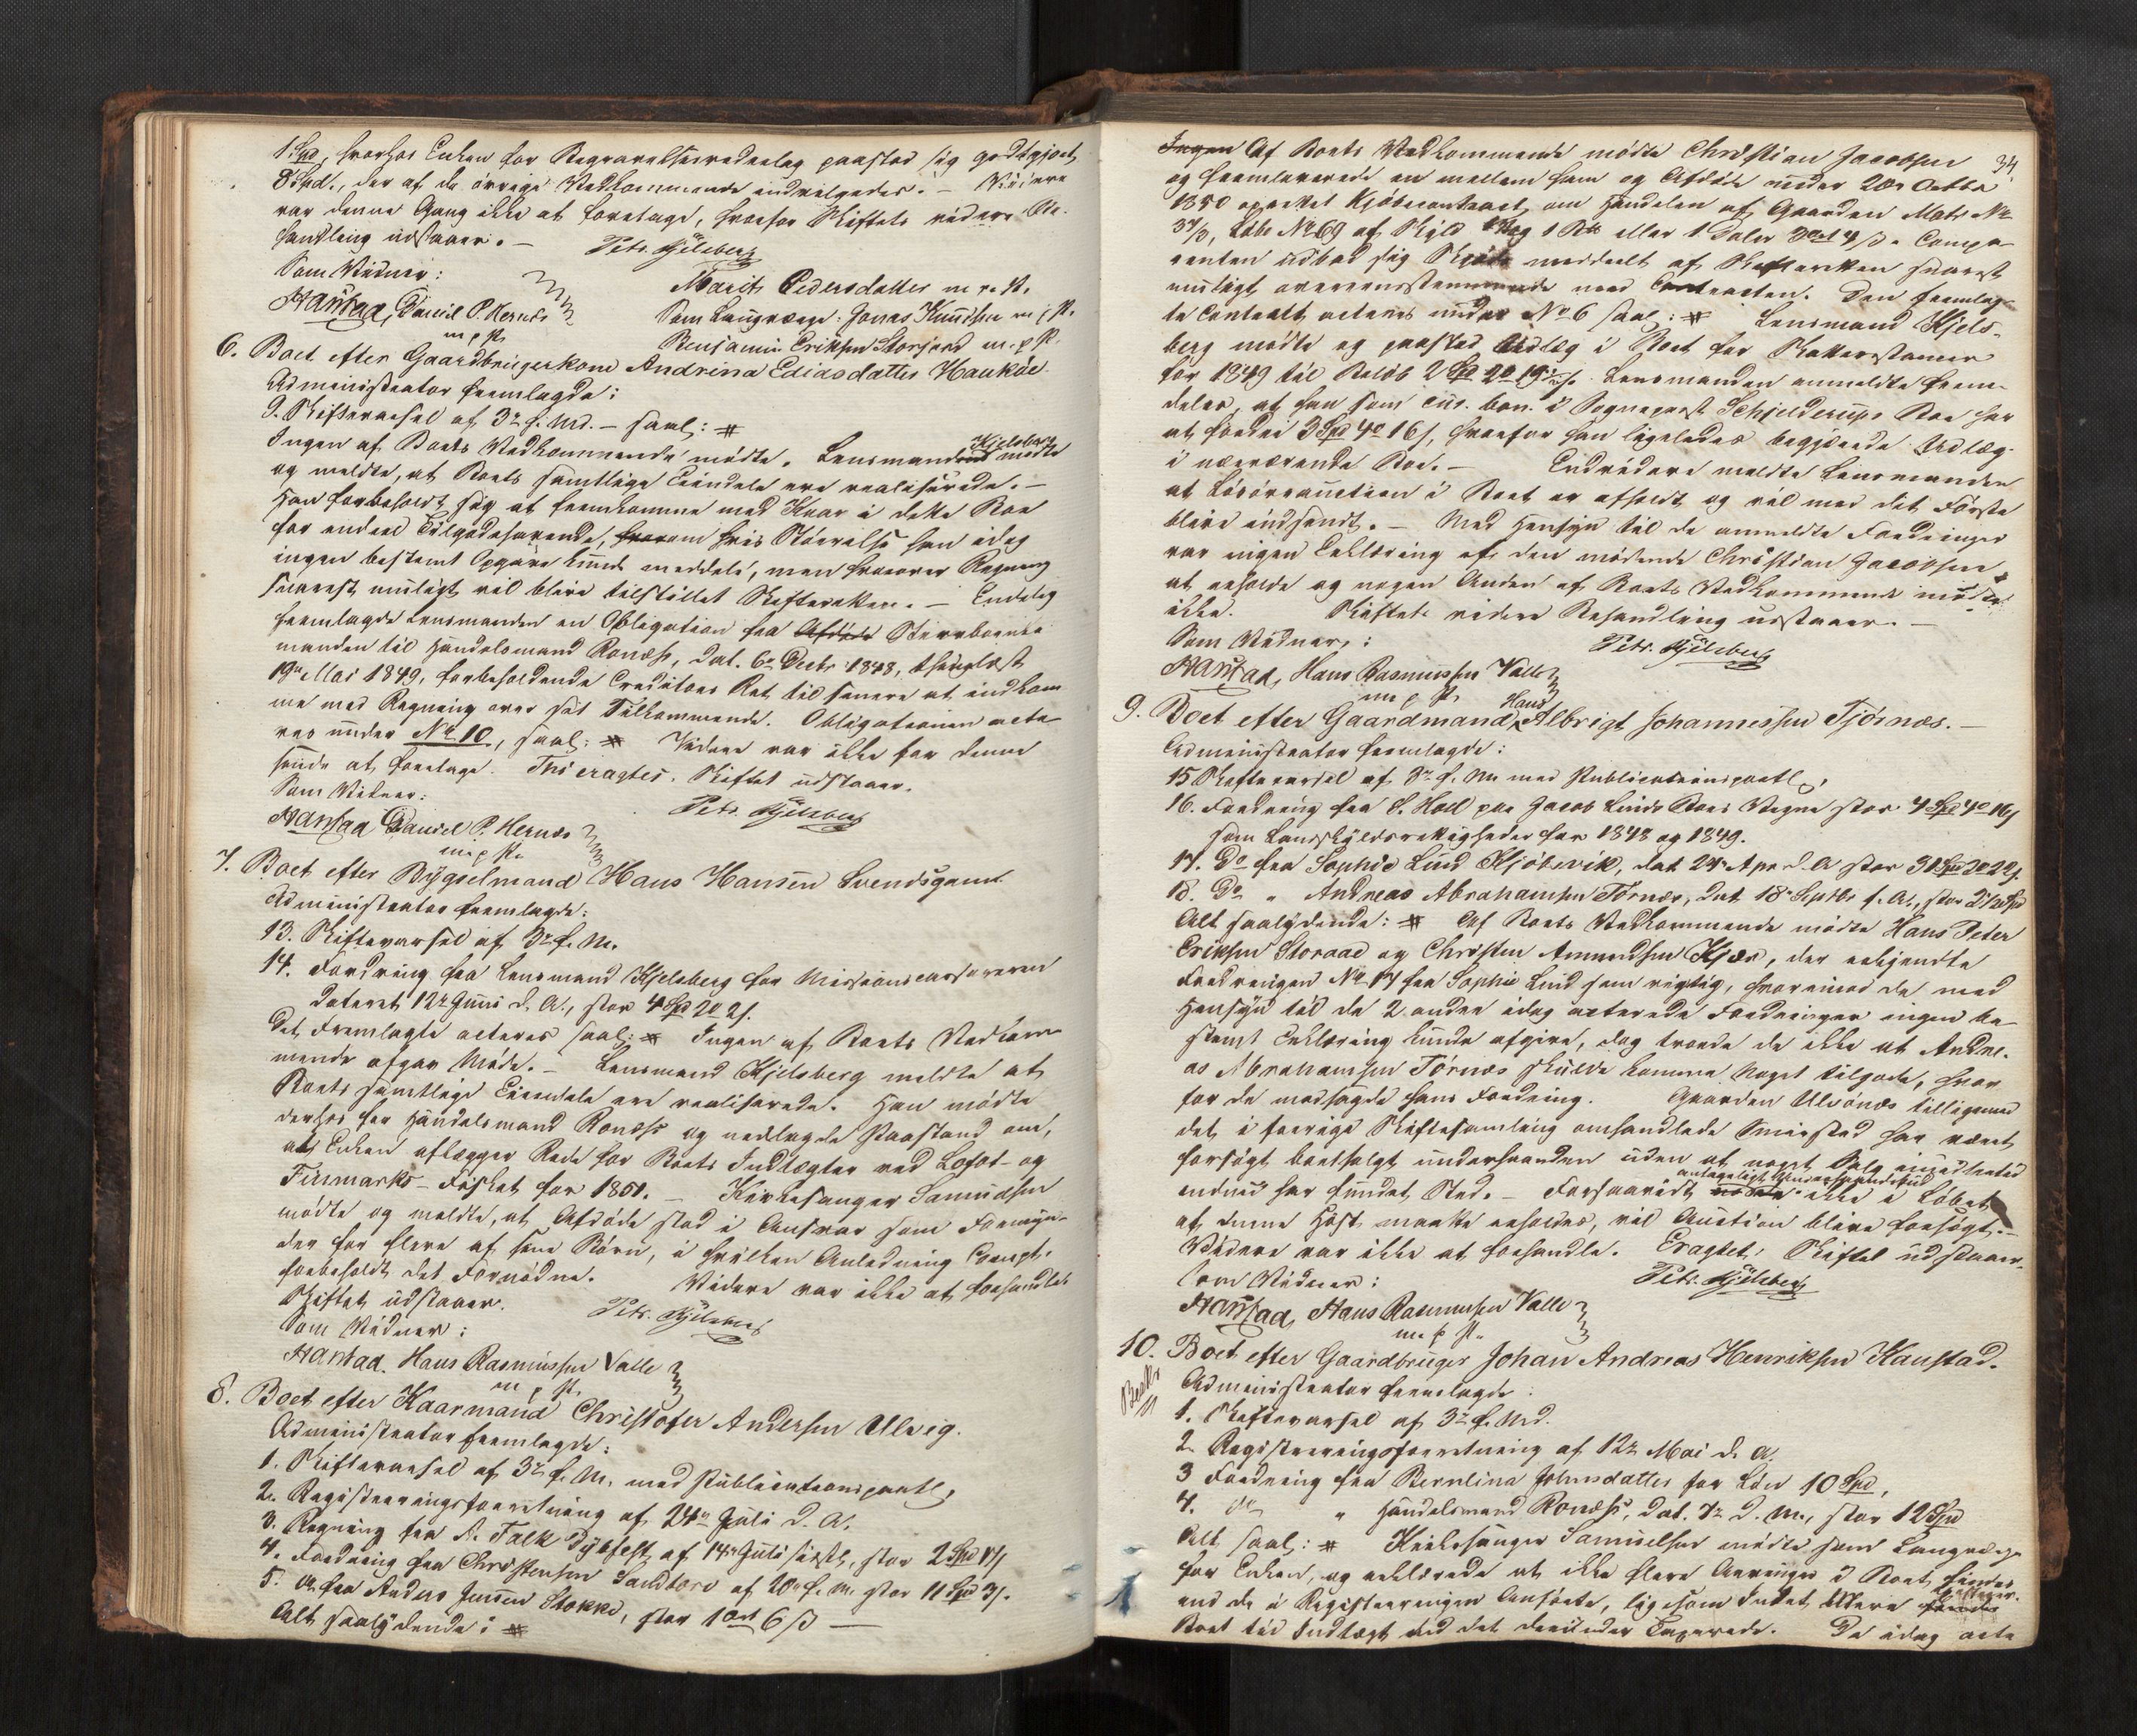 1 Spd, hvorhos Enken for Begravelsesvederlag paastod sig godtgjort
8 Spd., der af de övrige Vedkommende indvilgedes. – Videre
var denne Gang ikke at foretage, hvorfor Skiftets videre Be-
handling udstaaer. – Petr. Hjelsberg
Som Vidner: Marit Pedersdatter m. p. P.
Harstad, Daniel P. Hernes Som Laugværge: Jonas Knudsen m. p. P.
m p P. Benjamin Eriksen Storjord m. p P.
6. Boet efter Gaardbrugerkone Andrina Ediasdatter Hauköe
Administrator fremlagde:
9. Skiftevarsel af 3de f. Md. – saal: #
Ingen af Boets Vedkommende mödte. Lensmand Kjelsberg mödte
og meldte, at Boets samtlige Eiendele ere realiserede. –
Han forbeholdt sig at fremkomme med Krav i dette Boe
for endeel Tilgodehavende, hvorom hvis Störrelse han idag
ingen bestemt Opgave kunde meddele, men hvorover Regning
snarest muligt vil blive tilstillet Skifteretten. – Endelig
fremlagde Lensmanden en Obligation fra Afdöde Stervboenke
manden til Handelsmand Ronæss, dat. 6te Decbr 1848, thinglæst
19de Mai 1849, forbeholdende Creditors Ret til senere at indkom
me med Regning over sit Tilkommende. Obligationen acte
res under No 10, saal: # Videre var ikke for denne
sinde at foretage. Thi eragtes. Skiftet udstaaer.
Som Vidner: Petr. Hjelsberg
Harstad Daniel P. Hernes
m p P.
7. Boet efter Bygselmand Hans Hansen Svendsgamt
Administrator fremlagde:
13. Skiftevarsel af 3de f. M.
14. Fordring fra Lensmand Kjelsberg for Missionscassereren
dateret 12te Juni d. A., stor 4 Spd 2o 2s.
Det Fremlagte acteres saal: # Ingen af Boets Vedkom
mende afgav Möde. – Lensmand Kjelsberg meldte at
Boets samtlige Eiendele ere realiserede. Han mödte
derhos for Handelsmand Ronæss og nedlagde Paastand om,
at Enken aflægger Rede for Boets Indtægter ved Lofot- og
Finmarks-Fisket for 1851. – Kirkesanger Samuelsen
mödte og meldte, at Afdöde stod i Ansvar som Formyn-
der for flere af sine Börn, i hvilken Anledning Compt.
forbeholdt det Fornödne. Videre var ikke at forhandle
Skiftet udstaaer. Petr. Hjelsberg
Som Vidner:
Harstad. Hans Rasmussen Valle
m p P.
8. Boet efter Kaarmand Christofer Andersen Ulvig.
Administrator fremlagde:
1. Skiftevarsel af 3de f. M. med Publicationspaat,
2. Registreringsforretning af 24de Juli d. A.
3. Regning fra A. Falk Dybfest af 14de Juli sidstl., stor 2 Spd 17s
4. Fordring fra Christensen Sandtorv af 20de f. M. stor 11 Spd 3s.
5. do fra Anders Jensen Stokke, stor 1 Ort 6 s –
Alt saalydende: #
34.
Ingen Af Boets Vedkommende mödte Christian Jacobsen
og fremleverede en mellem ham og Afdöde under 2den Octbr
1850 oprettet Kjöbecontract om Handelen af Gaarden Matr No
37/0, Löbe No 69 af Skyld 1 Daler 3 Ort 4 s. Compa-
renten udbad sig Skjöde meddeelt af Skifteretten snarest
muligt overeensstemmende med Contracten. Den fremlag-
te Contract acteres under No 6 saal: # Lensmand Kjels-
berg mödte og paastod Udlæg i Boet for Skatterestance
for 1849 til Belöb 2 Spd 2o 19½s. Lensmanden anmeldte frem-
deles, at han som cur. bon. i Sogneprest Schjelderups Boe har
at fordre 3 Spd 4o 16s, hvorfor han ligeledes begjærede Udlæg
i nærværende Boe. – Endvidere meldte Lensmanden
at Lösöreauction i Boet er afholdt og vil med det Förste
blive indsendt. – Med Hensyn til de anmeldte Fordringer
var ingen Erklæring af den mödende Christian Jacobsen
at erholde og nogen Anden af Boets Vedkommende mödte
ikke. Skiftets videre Behandling udstaaer. –
Som Vidner: Petr. Hjelsberg
Harstad, Hans Rasmussen Valle
m p P.
9. Boet efter Gaardmand Hans Albrigt Johannessen Tjörnæs. –
Administrator fremlagde:
15 Skiftevarsel af 3de f. M. med Publicationspaat,
16. Fordring fra S. Holl paa Jacob Linds Boes Vegne stor 4 Spd 4o 16s
som Landskyldsrettigheder for 1848 og 1849.
17. Do fra Sophie Lind Kjöbsvik, dat 24de Apr. d. A stor 31 Spd 2o 22s.
18. Do „ Andreas Abrahamsen Törnæs, dat 18de Septbr f. A., stor 27 Spd
Alt saalydende: # Af Boets Vedkommende mödte Hans Peter
Eriksen Storaae og Christen Amundsen Kjær, der erkjendte
Fordringen No 17 fra Sophie Lind som rigtig, hvorimod de med
Hensyn til de 2 andre idag acterede Fordringer ingen be-
stemt Erklæring kunde afgive, dog troede de ikke at Andre-
as Abrahamsen Törnæs skulde komme Noget tilgode, hvor
for de modsagde hans Fordring. Gaarden Ulvönæs tilligemed
det i forrige Skiftesamling omhandlede Smiested har været
forsögt bortsolgt underhaanden uden at noget Salg imidlertid
endnu har fundet Sted. – Forsaavidt antageligt Underhaandsbud ikke i Löbet
af denne Höst maatte erholdes, vil Auction blive forsögt. –
Videre var ikke at forhandle. Eragtet: Skiftet udstaaer.
Som Vidner: Petr. Hjelsberg
Harstad, Hans Rasmussen Valle
m p P.
10. Boet efter Gaardbruger Johan Andreas Henriksen Kanstad.
Administrator fremlagde:
1. Skiftevarsel af 3de f. Md.
2. Registreringsforretning af 12te Mai d. A.
3 Fordring fra Bernlina Johnsdatter for Lön 10 Spd,
4. do „ Handelsmand Ronæss, dat. 7de d. M., stor 12 Spd
Alt saal: # Kirkesanger Samuelsen mödte som Laugværge
for Enken, og erklærede at ikke flere Arvinger i Boet findes
end de i Registreringen Anförte, ligesom Intet Mere tilhörer
Boet til Indtægt end det derunder Anförte. De idag acte